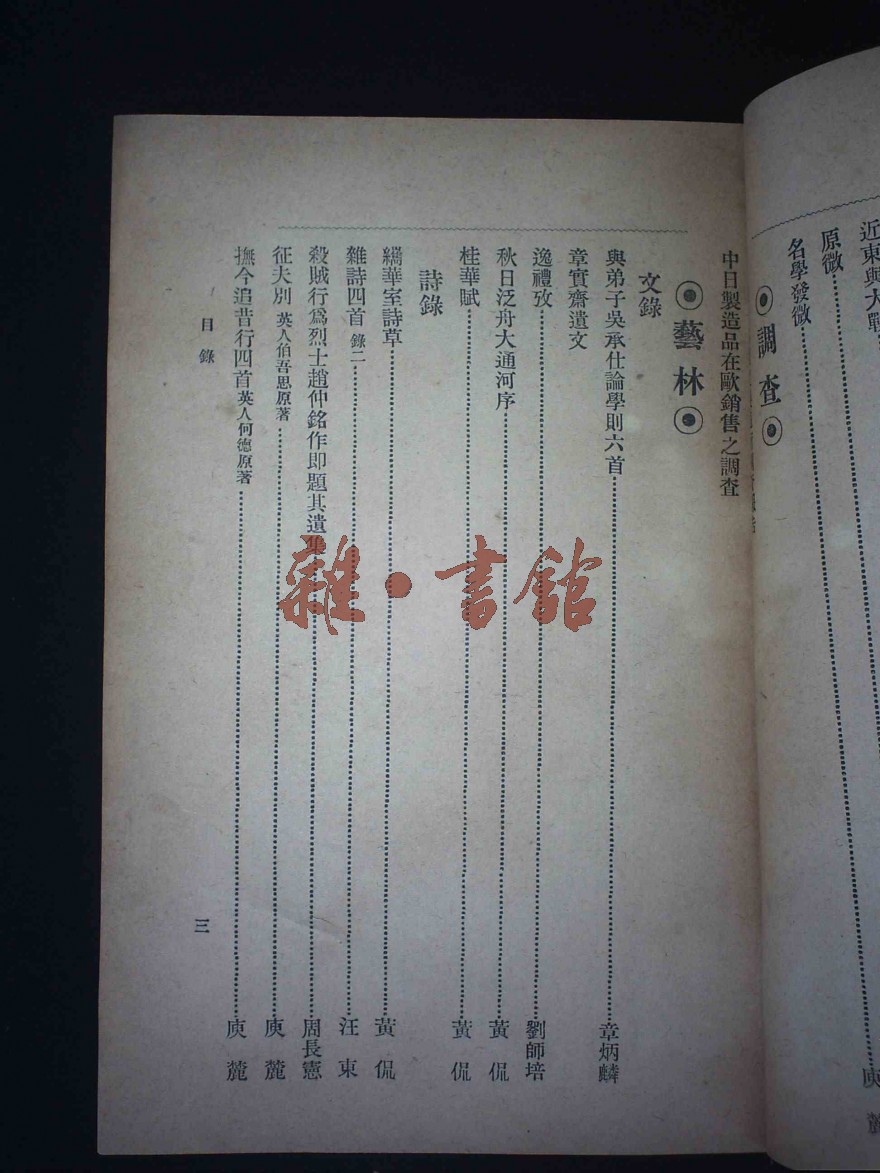 近東與大戰
原微
名學發微
庾
◉調查◉
中日製造品在歐銷售之調查
◉藝林◉
文錄
與弟子吳承仕論學則六首 章炳麟
章實齋遺文
逸禮攷 劉師培
秋日泛舟大通河序 黃侃
桂華賦 黃侃
詩錄
繡華室詩草 黃侃
雜詩四首 錄二 汪東
殺賊行爲烈士趙仲銘作即題其遺集 周長憲
征夫別 英人伯吾思原著 庾麓
撫今追昔行四首 英人何德原著 庾麓
目錄
三
雜·書館